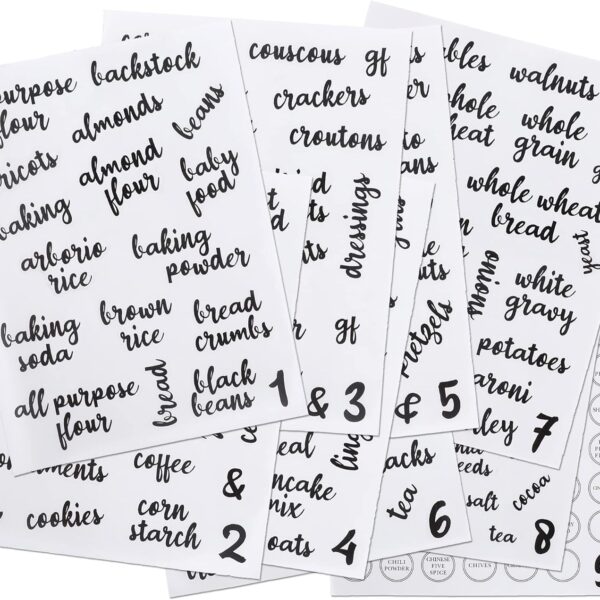 purpose
flour
backstock
almonds
beans
ricots
almond
flour
baby
food
baking
arborio
rice
baking
powder
baking
soda
brown
rice
bread
crumbs
all purpose
flour
bread
black
beans
1
coffee
&
cookies
corn
starch
2
couscous
gf
crackers
croutons
dressings
gf
& 3
eal
ncake
mix
oats
4
to
ans
uts
pretzels
& 5
acks
tea
6
bles
walnuts
whole
heat
whole
grain
whole wheat
bread
yeast
onions
white
gravy
potatoes
aroni
ley
7
eeds
salt
cocoa
tea
8
CHILI
POWDER
CHINESE
FIVE
SPICE
CHIVES
9